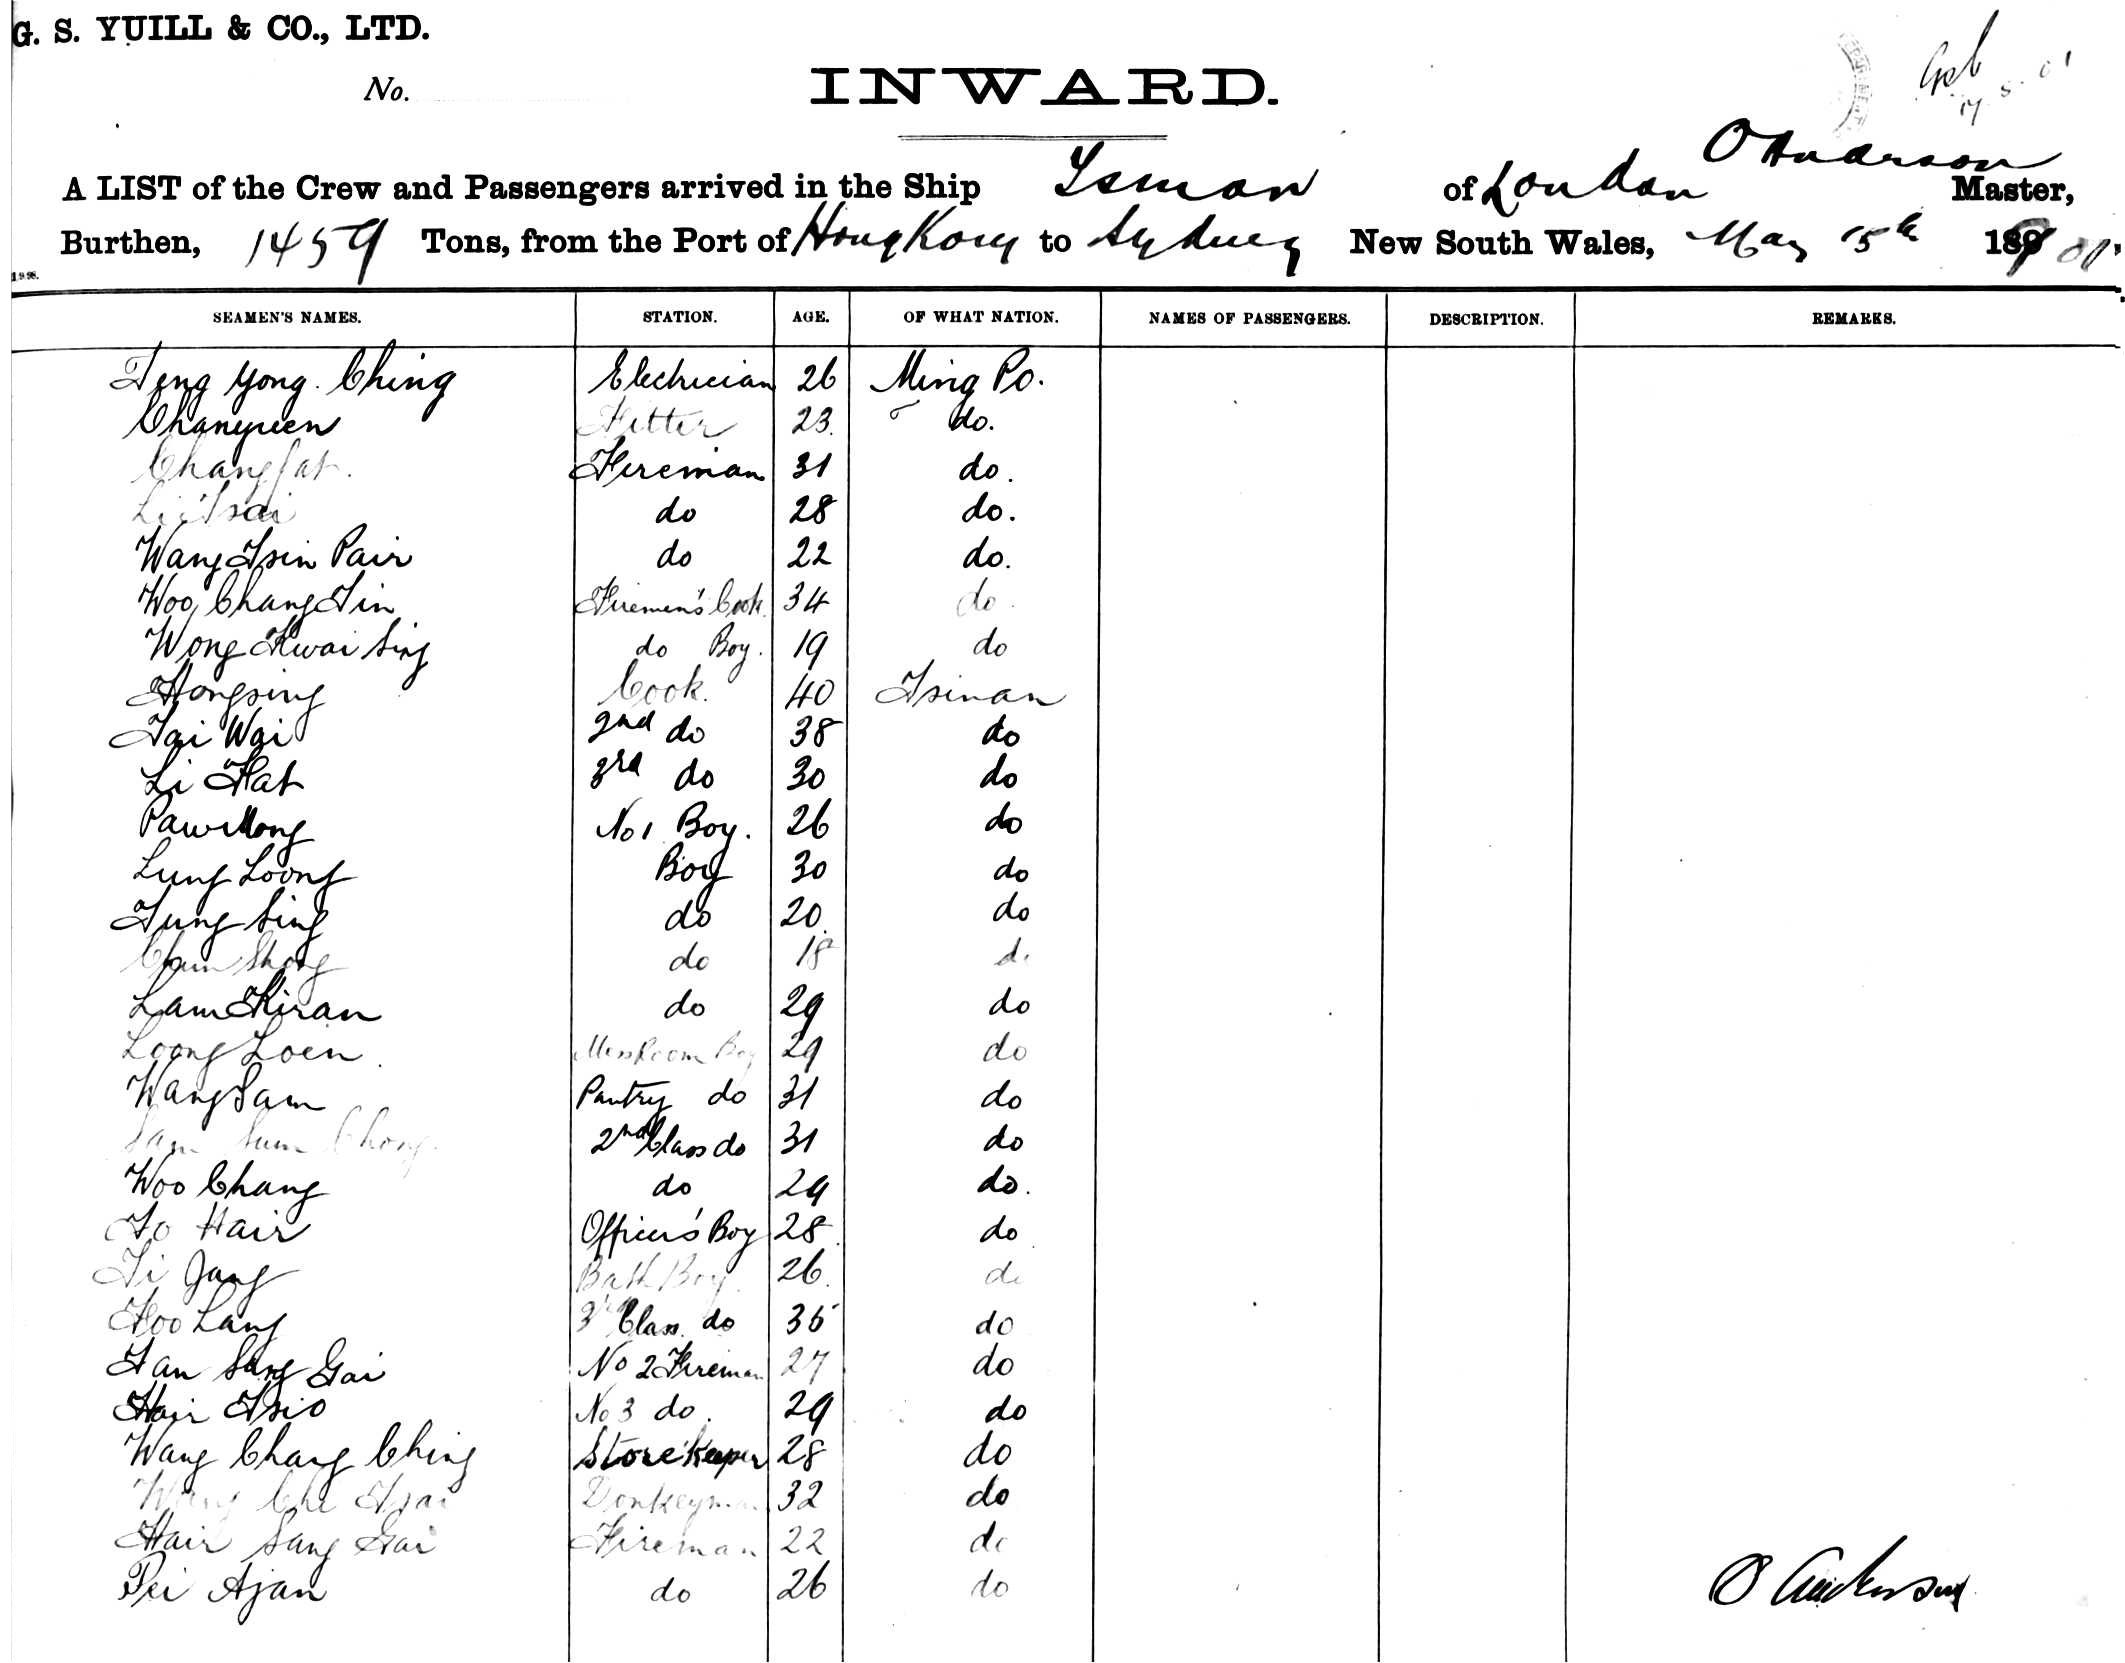 G. S. YUILL & CO., LTD.
No.
INWARD.
O Anderson
A LIST of the Crew and Passengers arrived in the Ship Tsinan of London Master,
Burthen, 1459 Tons, from the Port of Hong Kong to Sydney New South Wales, May 15th 1901
SEAMEN'S NAMES. STATION. AGE. OF WHAT NATION. NAMES OF PASSENGERS. DESCRIPTION. REMARKS.
Feng Yong Ching Electrician 26 Ming Po.
Chanyuen Fitter 23. do.
Changfat. Fireman 31 do.
Li Tsai do 28 do.
Wang Tsin Pair do 22 do.
Woo Chang Tin Firemen's Cook. 34 do.
Wong Kwai Sing do Boy. 19 do
Hongsing Cook. 40 Tsinan
Tai Wai 2nd do 38 do
Li Fat 3rd do 30 do
Paw Mong No 1 Boy. 26 do
Lung Loong Boy 30 do
Tung Sing do 20. do
Chun Shong do 18 do
Lam Kiran do 29 do
Loong Loen. Messroom Boy 29 do
Wang Sam Pantry do 31 do
Sam Sum Chong. 2nd Class do 31 do
Woo Chang do 29 do.
To Hair Officer's Boy 28. do
Ti Jang Bath Boy. 26. do
Foo Lang 3rd Class do 35 do
Tan Sang Gai No 2 Fireman 27 do
Hair Tsio No 3 do. 29 do
Wang Chang Ching Storekeeper 28 do
Wang Chi Tsai Donkeyman 32 do
Hair Sang Gai Fireman 22 do
Pei Ajan do 26 do
O Anderson